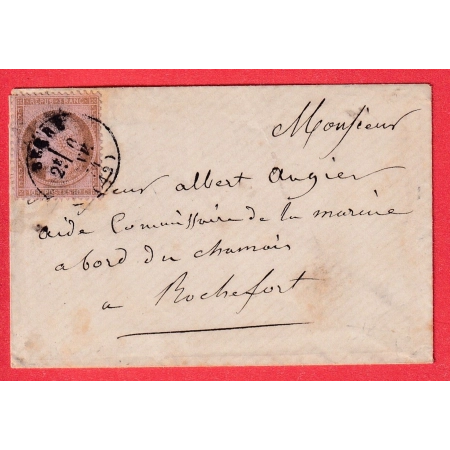 REPUB FRANC
BREST
(28)
Monsieur
Monsieur albert Angier
aide Commissaire de la marine
a bord du chamois
a Rochefort